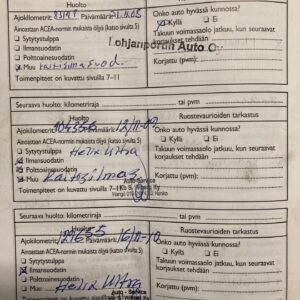 Huolto
Ajokilometrit: Päivämäärä:
Ainoastaan ACEA-normin mukaista öljyä (katso sivulta 5)
Sytytystulppa
Ilmansuodatin
Polttoainesuodatin
Muu
Toimenpiteet on kuvattu sivuilla 7–11
Onko auto hyvässä kunnossa?
Kyllä Ei
Takuun voimassaolo jatkuu, kun seuraavat
korjaukset tehdään
Lohjanportin Auto Oy
Korjattu (pvm):
Seuraava huolto: kilometriraja tai pvm
Huolto
Ajokilometrit: Päivämäärä: 12/11-09
Ainoastaan ACEA-normin mukaista öljyä (katso sivulta 5)
Sytytystulppa Helix Ultra
Ilmansuodatin
Polttoainesuodatin
Muu Raitisilmas
Toimenpiteet on kuvattu sivuilla 7–11
Ruostevaurioiden tarkastus
Onko auto hyvässä kunnossa?
Kyllä Ei
Takuun voimassaolo jatkuu, kun seuraavat
korjaukset tehdään
Korjattu (pvm):
Seuraava huolto: kilometriraja tai pvm
Huolto
Ajokilometrit: 121655 Päivämäärä: 16/11-10
Ainoastaan ACEA-normin mukaista öljyä (katso sivulta 5)
Sytytystulppa
Ilmansuodatin
Polttoainesuodatin
Muu Helix Ultra
Toimenpiteet on kuvattu sivuilla 7–11
Ruostevaurioiden tarkastus
Onko auto hyvässä kunnossa?
Kyllä Ei
Takuun voimassaolo jatkuu, kun seuraavat
korjaukset tehdään
Korjattu (pvm):